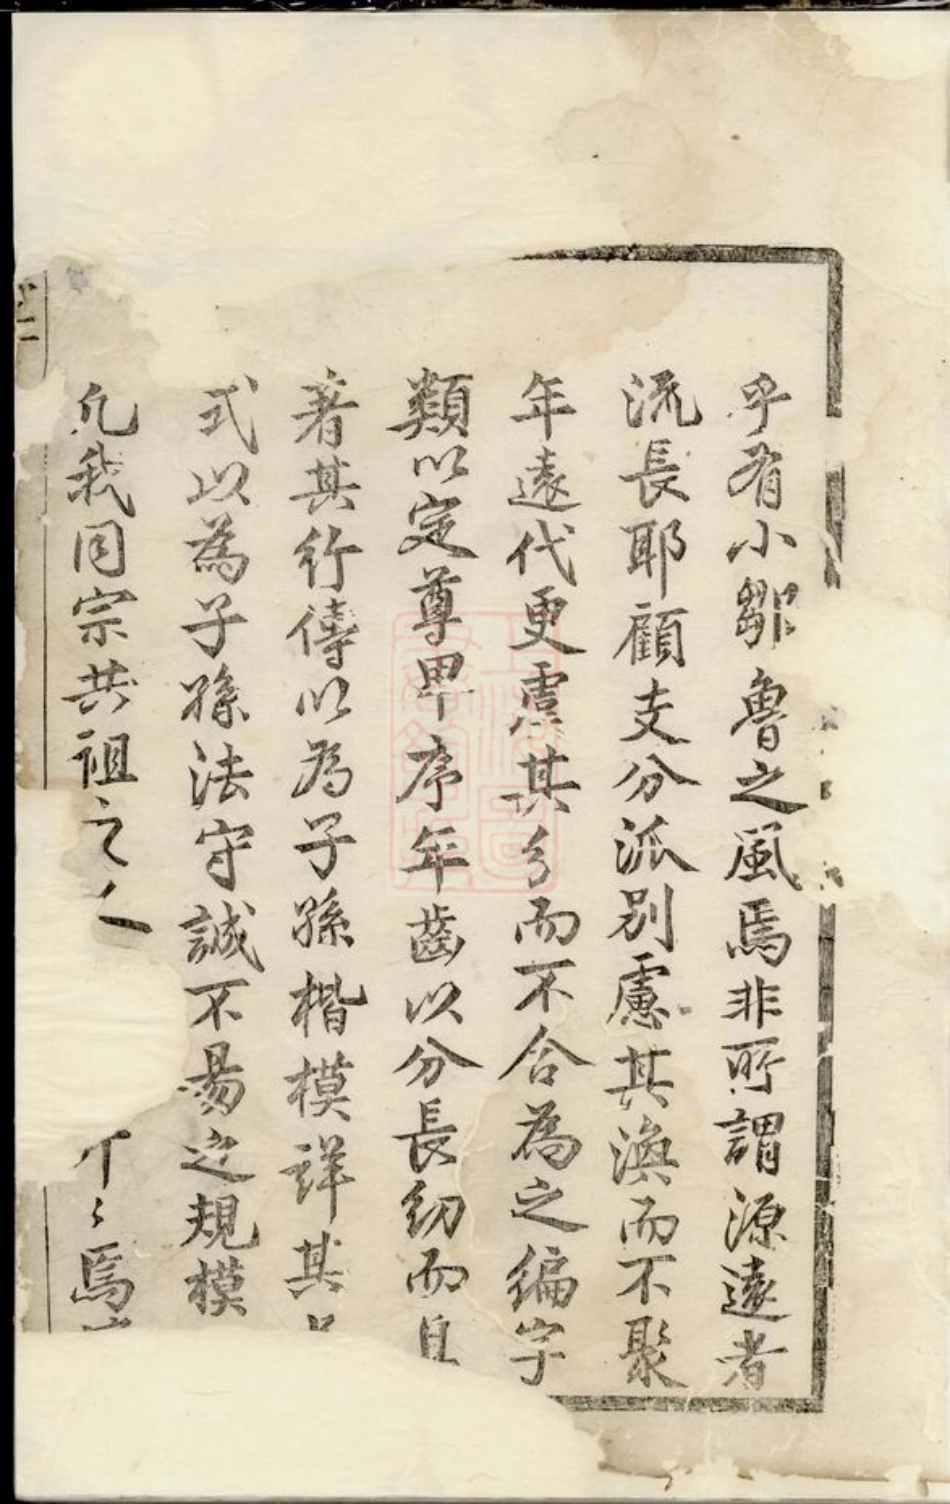 乎有小鄒魯之風焉非所謂源遠者
流長耶顧支分派別慮其渙而不聚
年遠代更慮其分而不合為之編字
類以定尊卑序年齒以分長幼而且
著其行傳以為子孫楷模詳其
式以為子孫法守誠不易之規模
凡我同宗共祖之人
焉